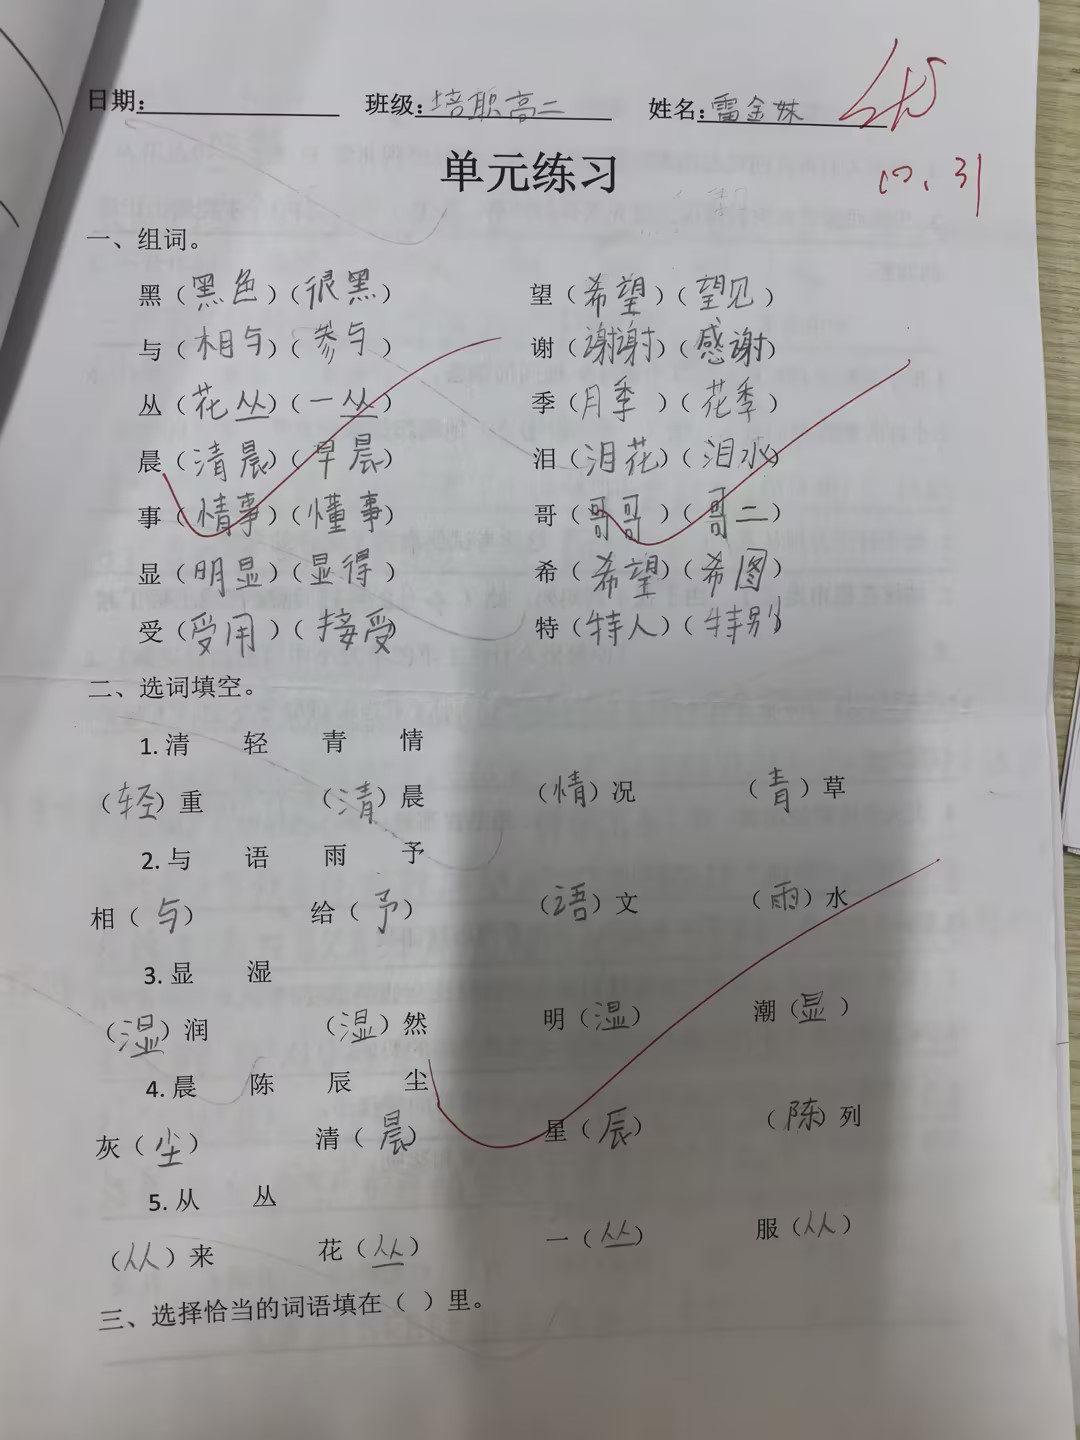 日期： 班级：培职高二 姓名：雷金妹
10.31
单元练习
一、组词。
黑（黑色）（很黑） 望（希望）（望见）
与（相与）（参与） 谢（谢谢）（感谢）
丛（花丛）（一丛） 季（月季）（花季）
晨（清晨）（早晨） 泪（泪花）（泪水）
事（情事）（懂事） 哥（哥哥）（哥二）
显（明显）（显得） 希（希望）（希图）
受（受用）（接受） 特（特人）（特别）
二、选词填空。
1. 清 轻 青 情
（轻）重 （清）晨 （情）况 （青）草
2. 与 语 雨 予
相（与） 给（予） （语）文 （雨）水
3. 显 湿
（湿）润 （湿）然 明（湿） 潮（显）
4. 晨 陈 辰 尘
灰（尘） 清（晨） 星（辰） （陈）列
5. 从 丛
（从）来 花（丛） 一（丛） 服（从）
三、选择恰当的词语填在（ ）里。